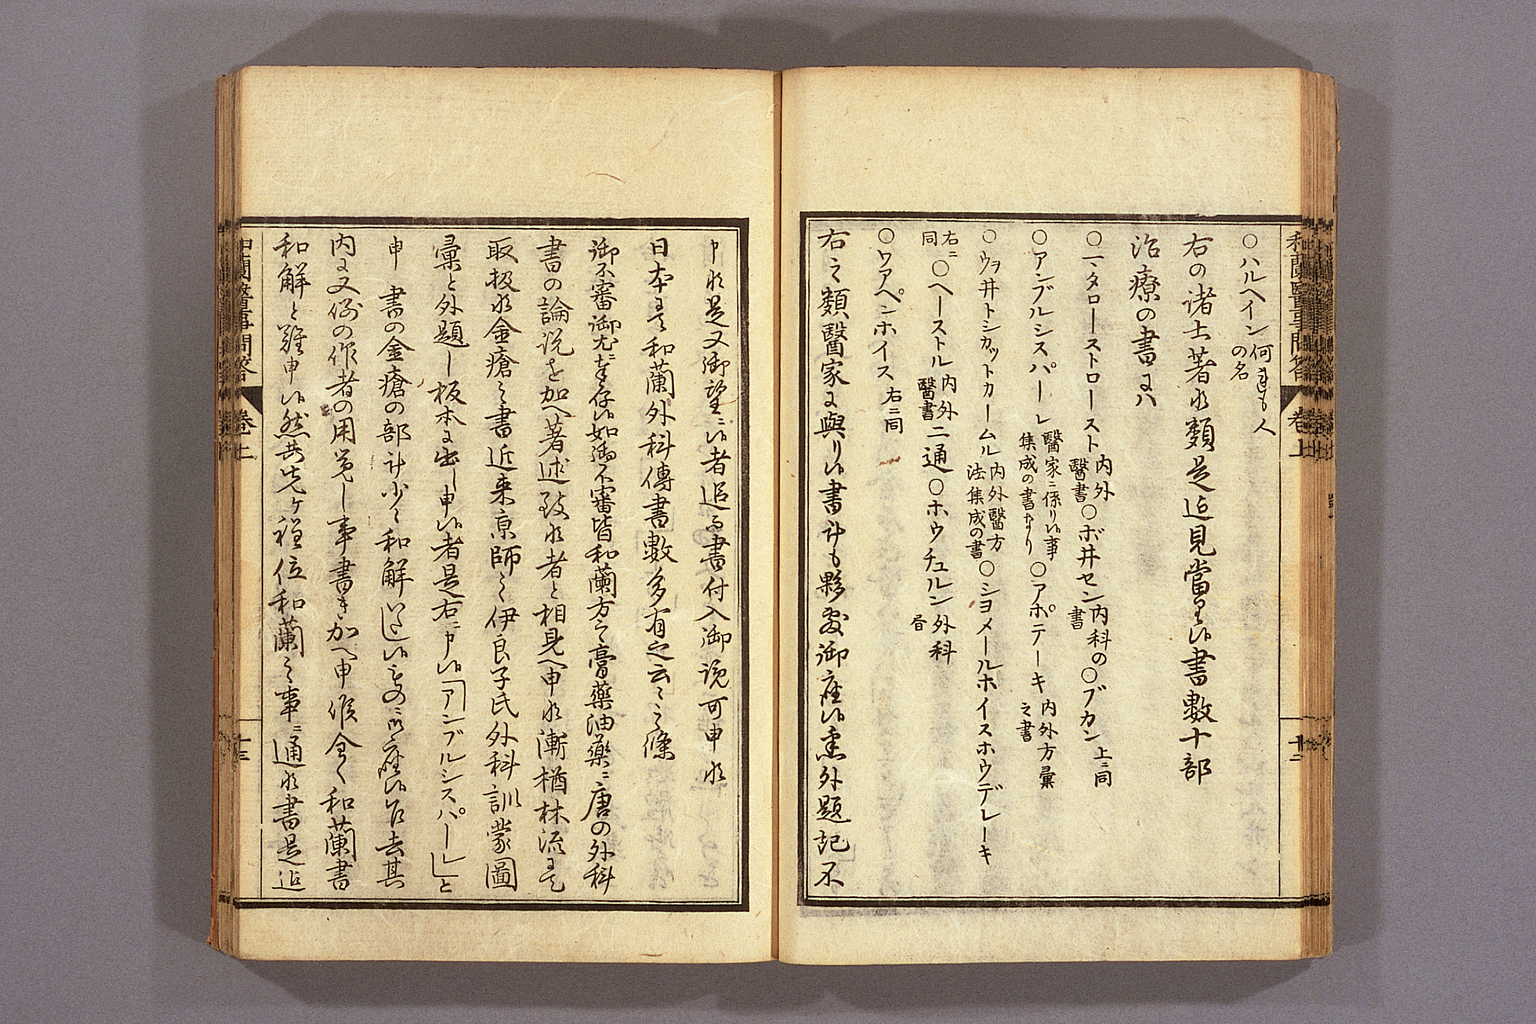 和蘭醫事問答 卷上 十二
〇ハルヘイン何れも人の名
右の諸士著述類是迄見當り候書數十部
治療の書には
〇一、タローストロースト内外醫書〇ボ井セン内科の書〇ブカン上ニ同
〇アンブルシスパーレ醫家ニ係り候事集成の書なり〇アポテーキ内外方彙之書
〇ウヲ井トシカットカームル内外醫方法集成の書〇シヨメールホイスホウデレーキ
右ニ同〇ヘーストル内外醫書二通〇ホウチュルン外科書
〇ワアペンホイス右ニ同
右之類醫家に與り候書計も夥敷御座候外題記不
申候是又御望ニ候者追而書付入御覧可申候
日本にて和蘭外科傳書數多有之云々之條
御不審御尤ニ奉存候如御不審皆和蘭方之膏藥油藥ニ唐の外科
書の論説を加へ著述致候者と相見へ申候漸楢林流にて
取扱候金瘡之書近来京師之伊良子氏外科訓蒙圖
彙と外題し板本に出し申候者是右ニ申候「アンブルシスパーレ」と
申 書の金瘡の部計少々和解いたし候ものニ御座候乍去其
内に又例の作者の用第し事書き加へ申候全く和蘭書
和解と難申候然共先ヶ程位化和蘭之事ニ通候書是迄
和蘭醫事問答 卷上 十三